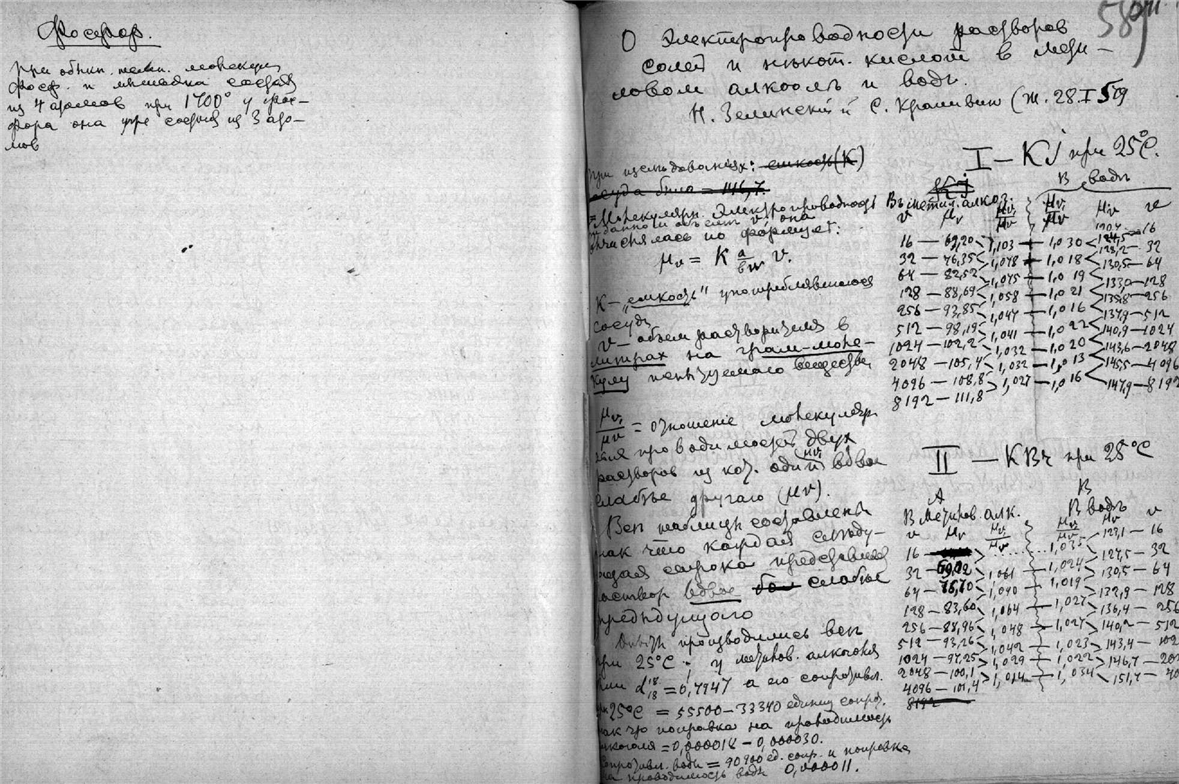 Фосфор.
При обыкн. темп. молекулы
фосф. и мышьяка состоят
из 4 атомов при 1700° у фос-
фора она уже состоит из 3 ато-
мов
589
О электропроводности растворов
солей и нѣкот. кислот в мети-
ловом алкоолѣ и водѣ.
Н. Зелинский и С. Крапивин (Ж. 28.I 5
При изслѣдованиях: емкость (К)
сосуда была = 146,7.
Молекулярн. электропроводность
при данном объемѣ v она
вычислялась по формулѣ:
μv = K a/bw v.
К – „емкость" употреблявшегося
сосуда
v – объем растворителя в
литрах на грам-моле-
кулу вещества
μv₁/μv = отношение молекуляр.
проводимостей двух
растворов из кот. один μv₁ вдвое
слабѣе другаго (μv).
Всѣ таблицы составлены
так что каждая слѣду-
ющая строка представляет
раствор вдвое слабѣе
предыдущаго
Опыты производились всѣ
при 25°C. у метилов. алкоголя
был d 18/18 = 0,7947 а его сопротивл.
при 25°C = 55500 – 33340 единиц сопр.
так что поправка на проводимость
алкоголя = 0,000018 – 0,000030.
Сопротивл. воды = 90900 ед. сопр. и поправка
на проводимость воды 0,000011.
I – KJ при 25°C.
В метил. алког. В водѣ
v μv μv₁/μv μv₁/μv μv v
16 – 69,20 1,103 – 1,030 – 16
32 – 76,35 1,078 – 1,018 128,2 – 32
64 – 82,52 1,075 – 1,019 130,5 – 64
128 – 88,69 1,058 – 1,021 133,0 – 128
256 – 93,85 1,047 – 1,016 135,8 – 256
512 – 98,19 1,041 – 1,022 137,9 – 512
1024 – 102,2 1,032 – 1,020 140,9 – 1024
2048 – 105,4 1,032 – 1,013 143,6 – 2048
4096 – 108,8 1,027 – 1,016 145,5 – 4096
8192 – 111,8 147,9 – 8192
II – KBr при 25°C
А В
В метилов. алк. В водѣ
v μv μv₁/μv μv₁/μv μv v
16 1,035 123,1 – 16
32 – 69,02 1,061 1,024 127,5 – 32
64 – 75,70 1,040 1,019 130,5 – 64
128 – 83,60 1,064 – 1,027 132,9 – 128
256 – 88,96 1,048 – 1,027 136,4 – 256
512 – 93,26 1,042 – 1,023 140,2 – 512
1024 – 97,25 1,029 – 1,022 143,4 – 102
2048 – 100,1 1,014 – 1,034 146,7 – 20
4096 – 101,4 151,7 – 40
8192